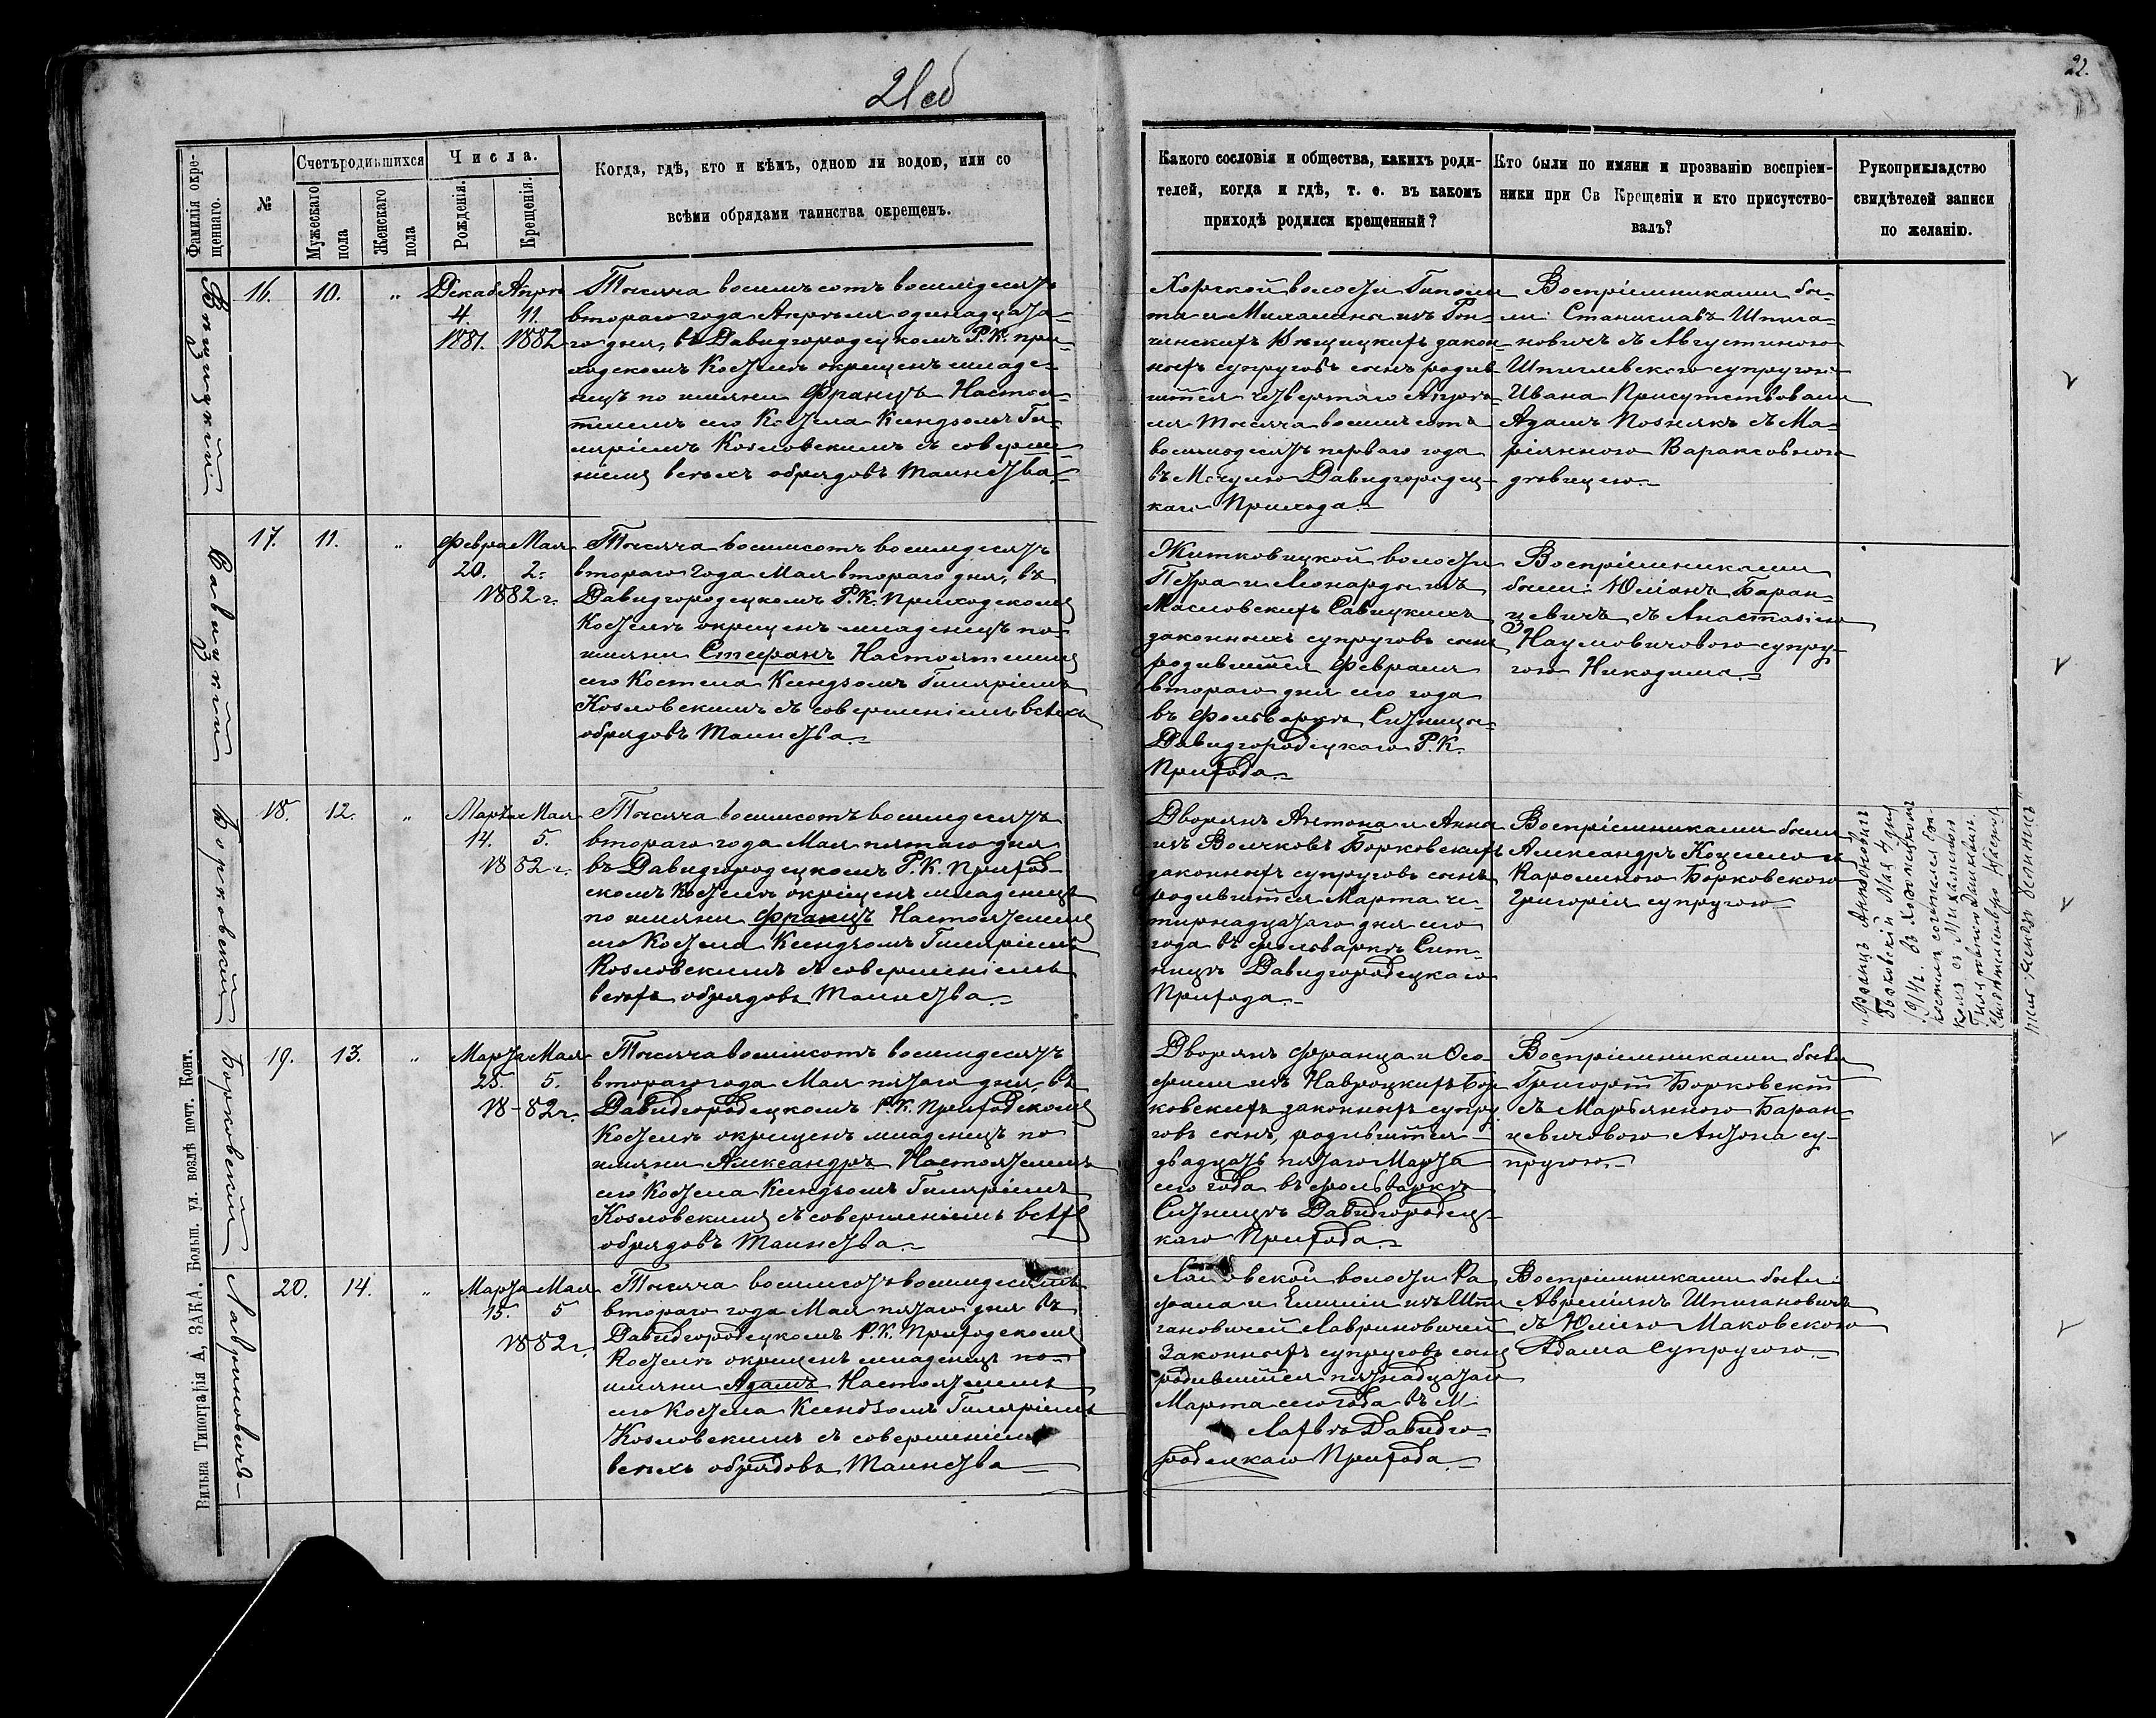 21 об
22.
Фамилія окре-
щеннаго.
№
Счетъ родившихся
Мужескаго
пола
Женскаго
пола
Числа.
Рожденія.
Крещенія.
Когда, гдѣ, кто и кѣмъ, одною ли водою, или со
всѣми обрядами таинства окрещенъ.
Какого сословія и общества, какихъ роди-
телей, когда и гдѣ, т. е. въ какомъ
приходѣ родился крещенный?
Кто были по имяни и прозванію воспріем-
ники при Св Крещеніи и кто присутство-
валъ?
Рукоприкладство
свидѣтелей записи
по желанію.
16.
10.
"
Декаб
4.
1881.
Апрѣ
11.
1882
Тысяча восемьсотъ восемьдесятъ
втораго года Апрѣля одинадцата-
го дня, въ Давидгородецкомъ Р. К. при-
ходскомъ Костелѣ окрещенъ младе-
нецъ по имяни Францъ Настоя-
телемъ сего Костела Ксендзомъ Ги-
ляріемъ Козловскимъ съ соверше-
ніемъ всѣхъ обрядовъ таинства.
Хорской волости Гиполи
та и Михалины изъ
законн
ныхъ супруговъ сынъ родив
шійся четвертаго
ля тысяча восемьсотъ
восемьдесятъ перваго года
въ Давидгородец-
каго Прихода.
Воспріемниками бы-
ли Станиславъ Шпига-
новичъ съ Августиною
супругою
Ивана Присутствовали
Адамъ Познякъ съ Ма-
ріянною Вараксовною
дѣвицею.
Савицкій
17.
11.
"
Февра
20.
Мая
2.
1882 г.
Тысяча восемьсотъ восемьдесятъ
втораго года Мая втораго дня, въ
Давидгородецкомъ Р. К. Приходскомъ
Костелѣ окрещенъ младенецъ по
имяни Стефанъ Настоятелемъ
сего Костела Ксендзомъ Гиляріемъ
Козловскимъ съ совершеніемъ всѣхъ
обрядовъ таинства.
Житковицкой волости
Петра и Леонарды изъ
Масловскихъ Савицкихъ
законныхъ супруговъ сынъ
родившійся Февраля
втораго дня сего года
въ фольваркѣ Ситницы
Давидгородецкаго Р. К.
Прихода.
Воспріемниками
были Юліанъ Баран-
цевичъ съ Анастасіею
Наумовичовою супру-
гою Никодима.
Борковскій
18.
12.
"
Марта
14.
Мая
5.
1882 г.
Тысяча восемьсотъ восемьдесятъ
втораго года Мая пятаго дня
въ Давидгородецкомъ Р. К. Приход-
скомъ Костелѣ окрещенъ младенецъ
по имяни Францъ Настоятелемъ
сего Костела Ксендзомъ Гиляріемъ
Козловскимъ съ совершеніемъ
всѣхъ обрядовъ таинства.
Дворянъ Антона и Анны
изъ Волчковъ Борковскихъ
законныхъ супруговъ сынъ
родившійся Марта че-
тырнадцатаго дня сего
года въ фольваркѣ Сит-
ницѣ Давидгородецкаго
Прихода.
Воспріемниками были
Александръ Коцело съ
Каролиною Борковскою
Григорія супругою
"Францъ Антоновичъ
Борковскій Мая 4 дня
1914 г. въ
костелѣ сочетался бра-
комъ съ Михалиною
Борковскій
19.
13.
"
Марта
25.
Мая
5.
1882 г.
Тысяча восемьсотъ восемьдесятъ
втораго года Мая пятаго дня, въ
Давидгородецкомъ Р. К. Приходскомъ
Костелѣ окрещенъ младенецъ по
имяни Александръ Настоятелемъ
сего Костела Ксендзомъ Гиляріемъ
Козловскимъ съ совершеніемъ всѣхъ
обрядовъ таинства.
Дворянъ Франца и Осо-
фіи изъ Навроцкихъ Бор
ковскихъ законныхъ супру
говъ сынъ, родившійся
двадцать пятаго Марта
сего года въ фольваркѣ
Ситницѣ Давидгородец-
каго Прихода.
Воспріемниками были
Григорій Борковскій
съ Марьянною Баран-
цевичовою Антона су-
пругою.
Лавриновичъ
20.
14.
"
Марта
15.
Мая
5
1882 г.
Тысяча восемьсотъ восемьдесятъ
втораго года Мая пятаго дня въ
Давидгородецкомъ Р. К. Приходскомъ
Костелѣ окрещенъ младенецъ по
имяни Адамъ Настоятелемъ
сего Костела Ксендзомъ Гиляріемъ
Козловскимъ съ совершеніемъ
всѣхъ обрядовъ таинства
волости Ра
фала и Емиліи изъ Шпи
гановичей Лавриновичей
законныхъ супруговъ сынъ
родившійся пятнадцатаго
Марта сего года въ М.
Лахвѣ Давидго-
родецкаго Прихода.
Воспріемниками были
Авреліянъ Шпигановичъ
съ Юліею Маковскою
Адама Супругою.
Вильна Типографія А, ЗАКА. Больш. ул. возлѣ почт. Конт.